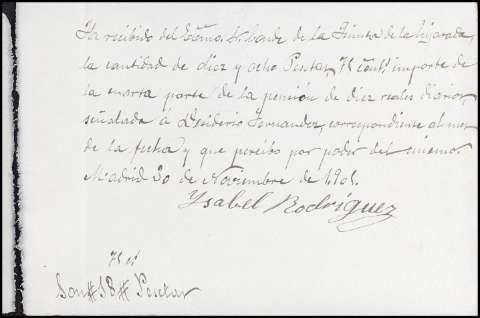 He recibido del Excmo. Sr. Conde de la Puebla de la
la cantidad de diez y ocho Pesetas, 75 cénts importe de
la cuarta parte de la pensión de diez reales diarios,
señalada á Desiderio Fernandez, correspondiente al mes
de la fecha y que percibo por poder del mismo
Madrid 30 de Noviembre de 1901.
Ysabel Rodríguez
75 ct
Son # 18 # Pesetas